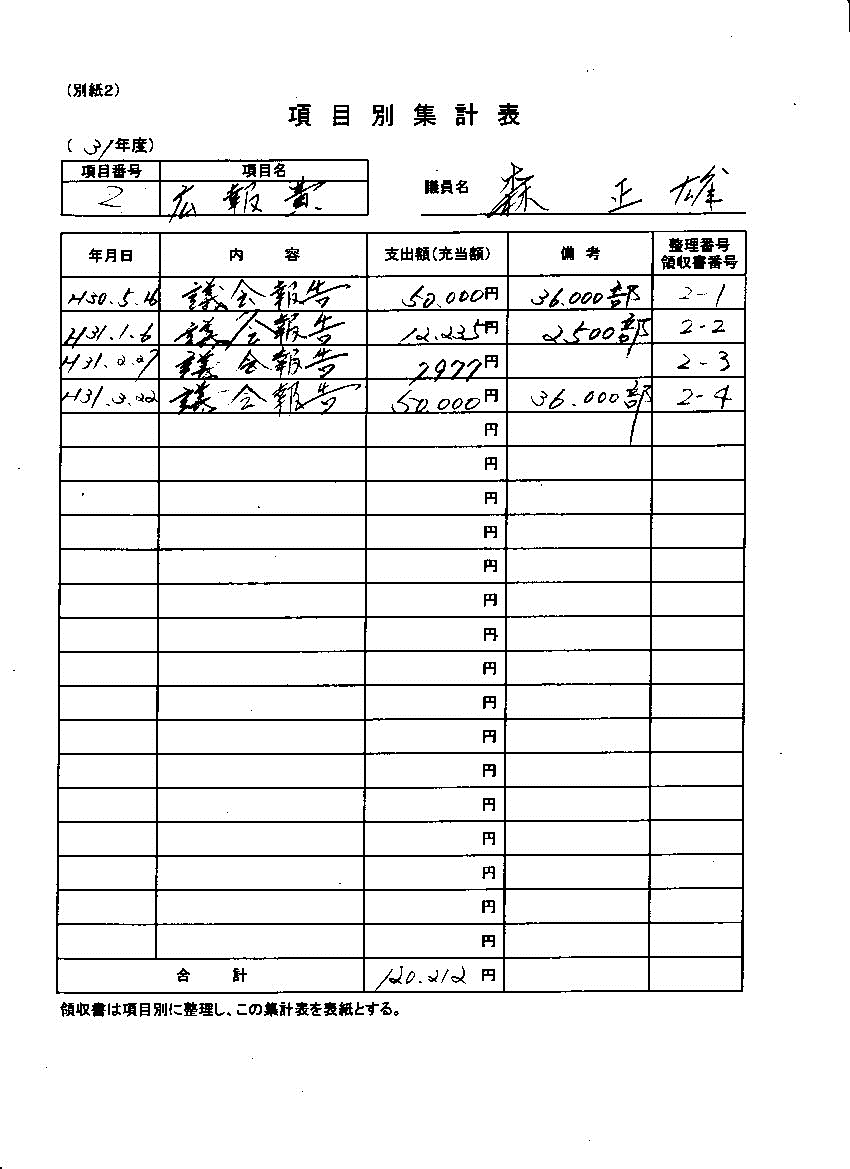 (別紙2)
項目別集計表
(31年度)
項目番号 項目名
2 広報費 議員名 森 正雄
年月日 内容 支出額(充当額) 備考 整理番号 領収書番号
H30.5.16 議会報告 50.000円 36.000部 2-1
H31.1.6 議会報告 12.235円 2500部 2-2
H31.2.27 議会報告 7977円 2-3
H31.3.22 議会報告 50.000円 36.000部 2-4
円
円
円
円
円
円
円
円
円
円
円
円
円
円
円
円
合計 120.212円
領収書は項目別に整理し、この集計表を表紙とする。